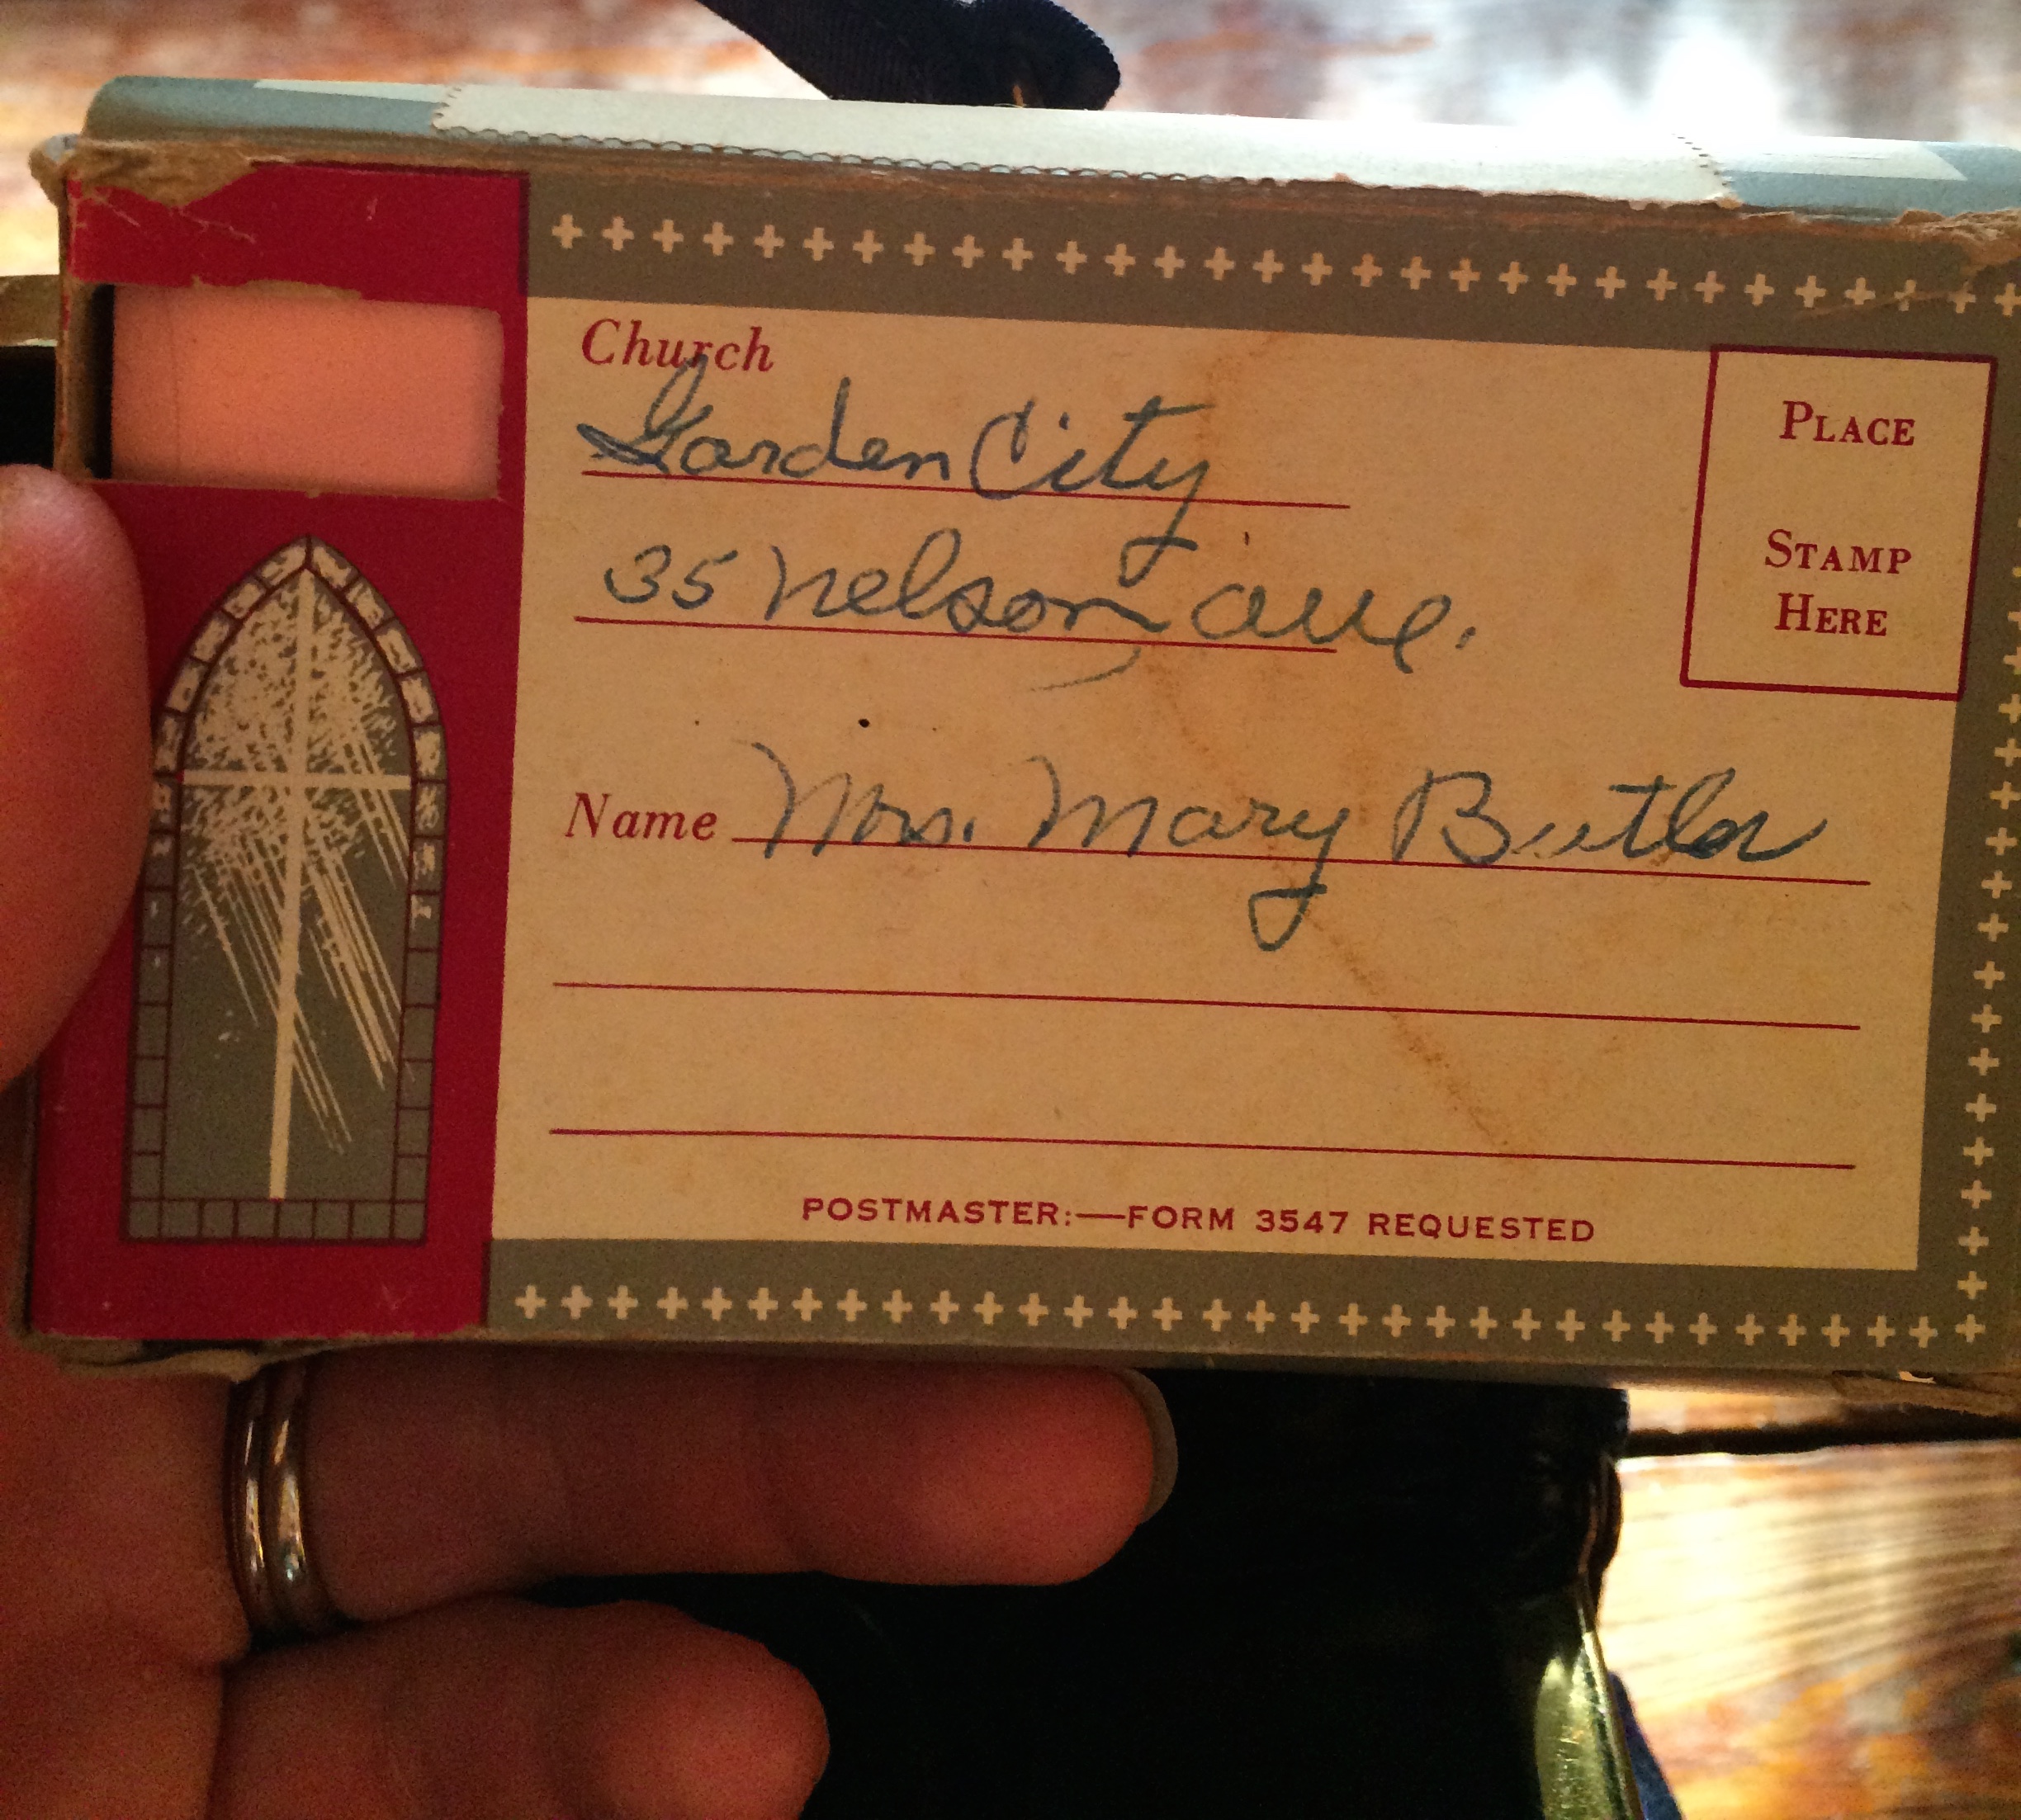 Church
Garden City
35 Nelson Ave.
PLACE
STAMP
HERE
Name Mrs. Mary Butler
POSTMASTER:—FORM 3547 REQUESTED